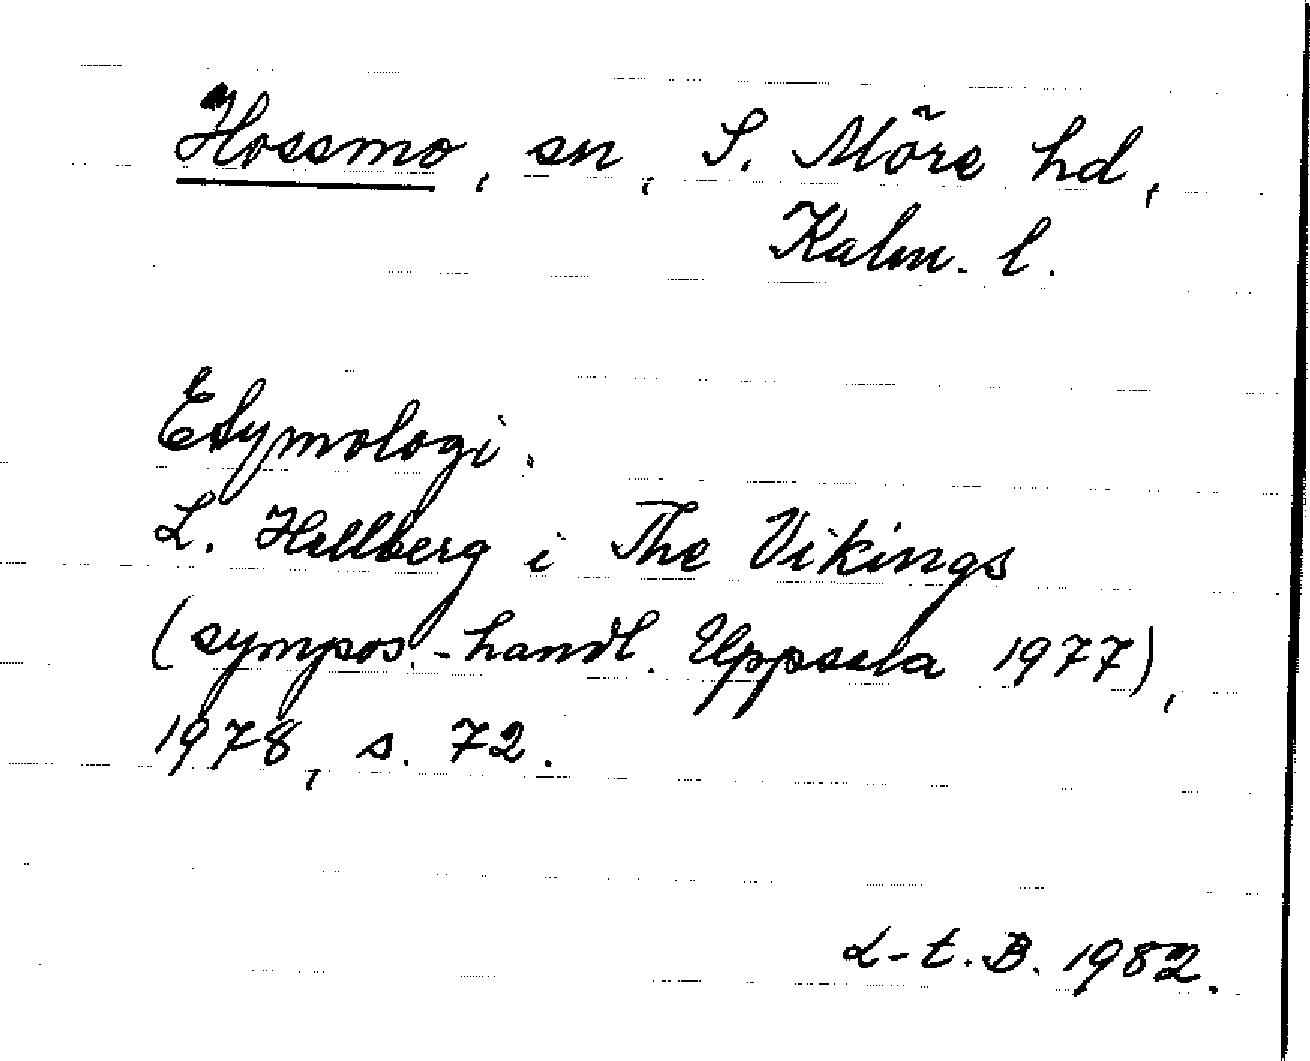 Hossmo, sn, S. Möre hd,
Kalm. l.
Etymologi.
L. Hellberg i The Vikings
(sympos.-handl. Uppsala 1977),
1978, s. 72.
L-t. B. 1982.